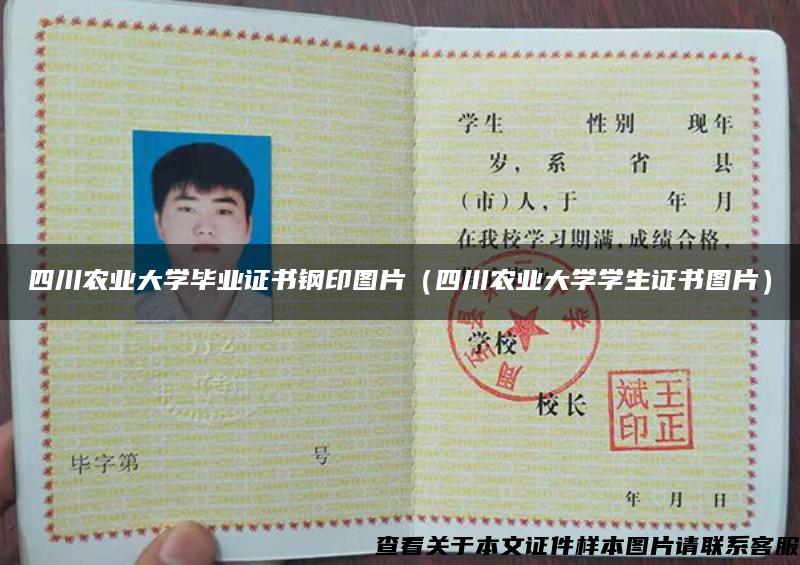 学生 性别 现年
岁,系 省 县
(市)人,于 年 月
在我校学习期满,成绩合格,
四川农业大学毕业证书钢印图片(四川农业大学学生证书图片)
学校
校长
王正
斌印
毕字第 号
年 月 日
查看关于本文证件样本图片请联系客服